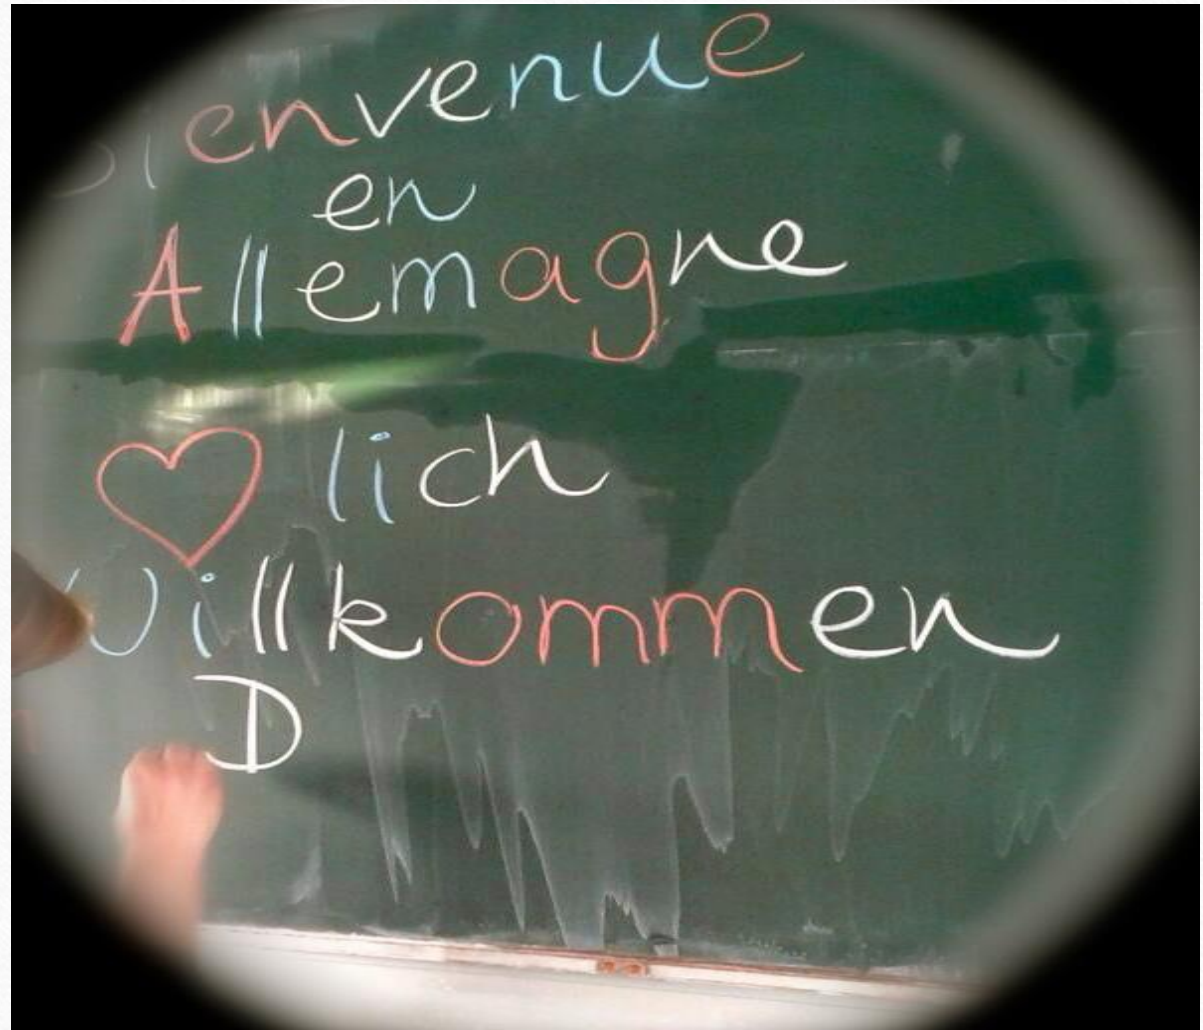 Bienvenue
en
Allemagne
♡lich
Willkommen
D